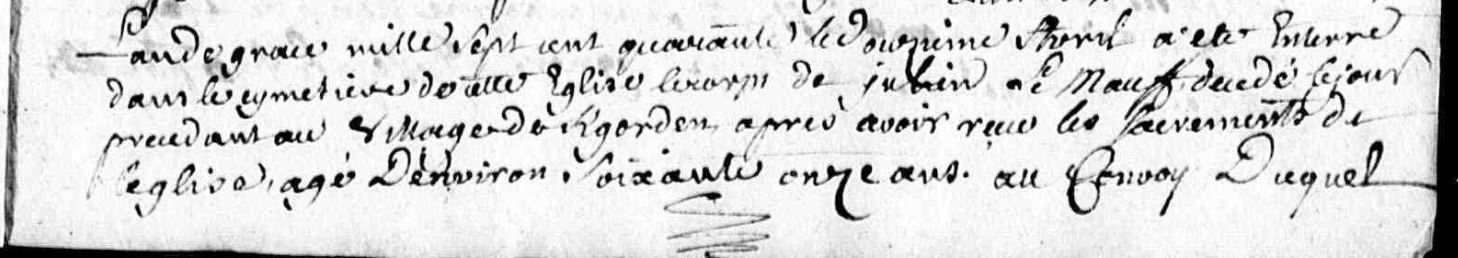 Lan de grace mille sept cent quarante le douzieme Avril a eté Enterré
dans le cymetiere de cette Eglise le corps de julien Le Mauff decedé le jour
precedant au village de Kgorden apres avoir receu les sacrements de
leglise, agé D'environ soixante onze ans. au Convoy Duquel